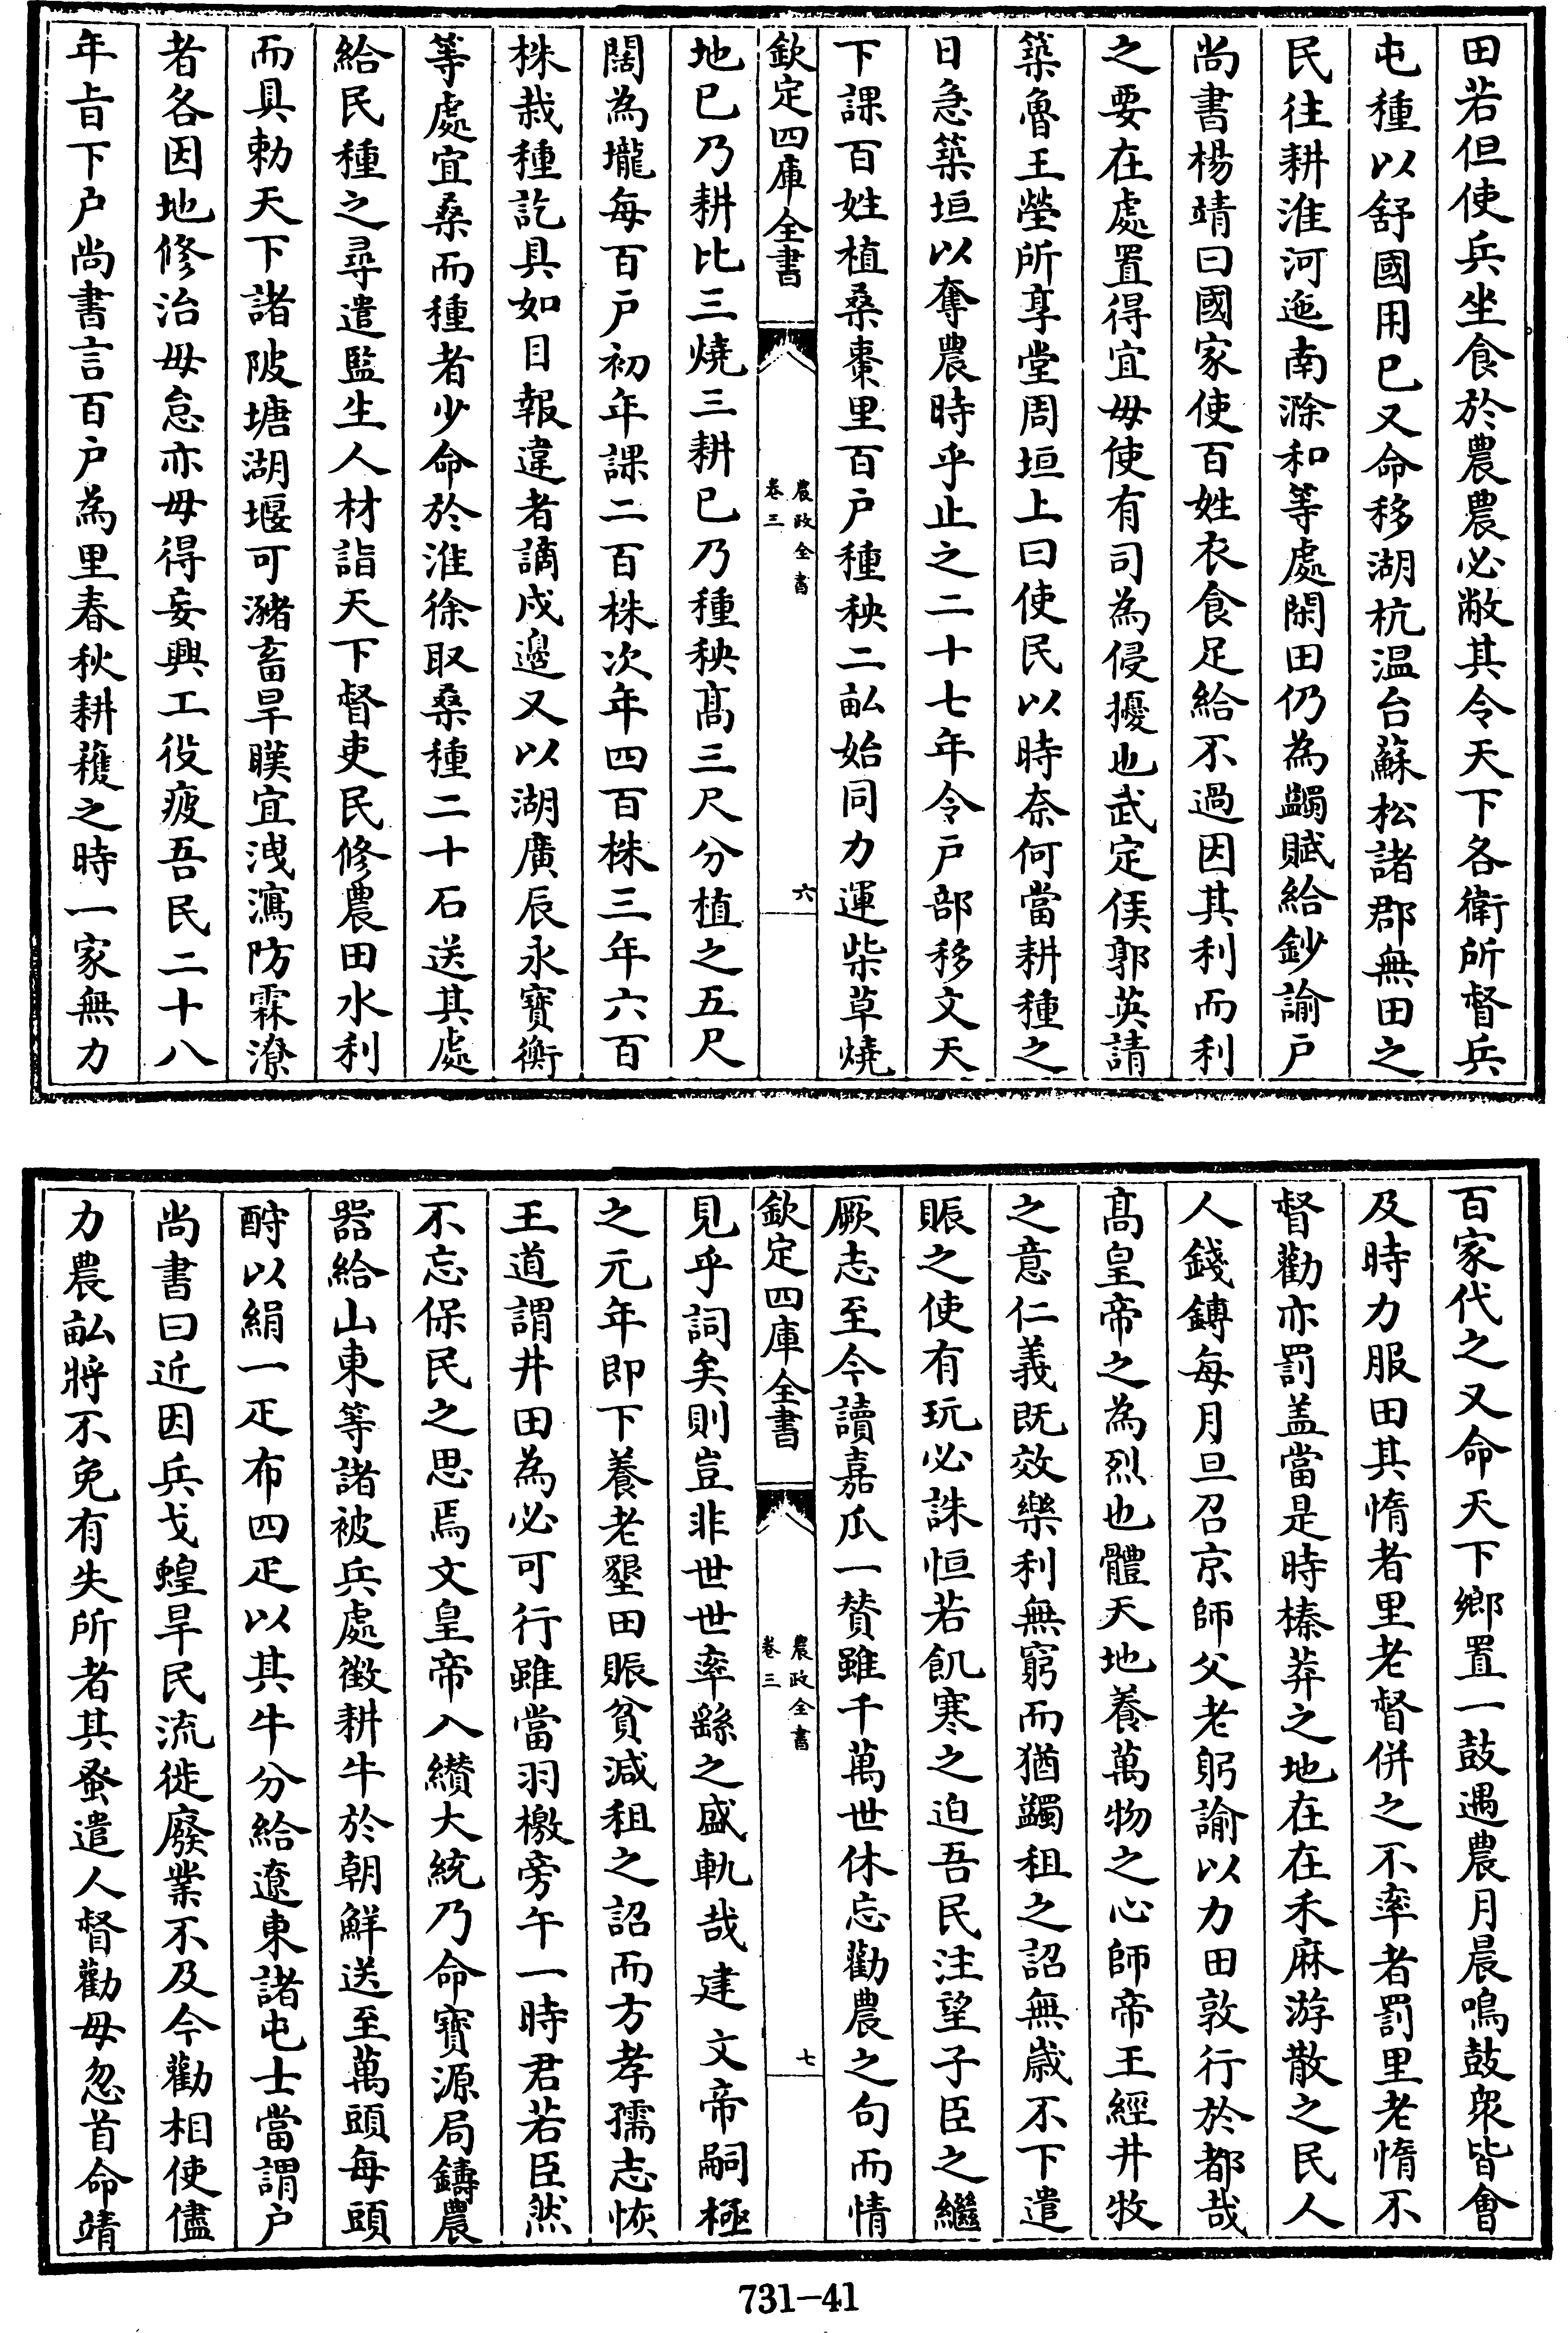 田若但使兵坐食於農農必敝其令天下各衛所督兵
屯種以舒國用已又命移湖杭温台蘇松諸郡無田之
民往耕淮河迤南滁和等處閑田仍為蠲賦給鈔諭戸
尚書楊靖曰國家使百姓衣食足給不過因其利而利
之要在處置得宜毋使有司為侵擾也武定侯郭英請
築魯王塋所享堂周垣上曰使民以時奈何當耕種之
日急築垣以奪農時乎止之二十七年令戸部移文天
下課百姓植桑棗里百戸種秧二畝始同力運柴草燒
欽定四庫全書
農政全書
卷三
六
地已乃耕比三燒三耕已乃種秧髙三尺分植之五尺
闊為壠每百戸初年課二百株次年四百株三年六百
株栽種訖具如目報違者謫戍邊又以湖廣辰永寳衡
等處宜桑而種者少命於淮徐取桑種二十石送其處
給民種之尋遣監生人材詣天下督吏民修農田水利
而具勅天下諸陂塘湖堰可瀦畜旱暵宜洩瀉防霖潦
者各因地修治毋怠亦毋得妄興工役疲吾民二十八
年㫖下戸尚書言百戸為里春秋耕穫之時一家無力
百家代之又命天下鄉置一鼓遇農月晨鳴鼓衆皆會
及時力服田其惰者里老督併之不率者罰里老惰不
督勸亦罰盖當是時榛莽之地在在禾麻游散之民人
人錢鎛每月旦召京師父老躬諭以力田敦行於都哉
髙皇帝之為烈也體天地養萬物之心師帝王經井牧
之意仁義既效樂利無窮而猶蠲租之詔無嵗不下遣
賑之使有玩必誅恒若飢寒之迫吾民注望子臣之繼
厥志至今讀嘉瓜一賛雖千萬世休忘勸農之句而情
欽定四庫全書
農政全書
卷三
七
見乎詞矣則豈非世世率繇之盛軌哉建文帝嗣極
之元年即下養老墾田賑貧減租之詔而方孝孺志恢
王道謂井田為必可行雖當羽檄旁午一時君若臣然
不忘保民之思焉文皇帝入纘大統乃命寳源局鑄農
器給山東等諸被兵處徵耕牛於朝鮮送至萬頭每頭
酧以絹一疋布四疋以其牛分給遼東諸屯士當謂戸
尚書曰近因兵戈蝗旱民流徙廢業不及今勸相使儘
力農畝將不免有失所者其蚤遣人督勸毋忽首命靖
731-41